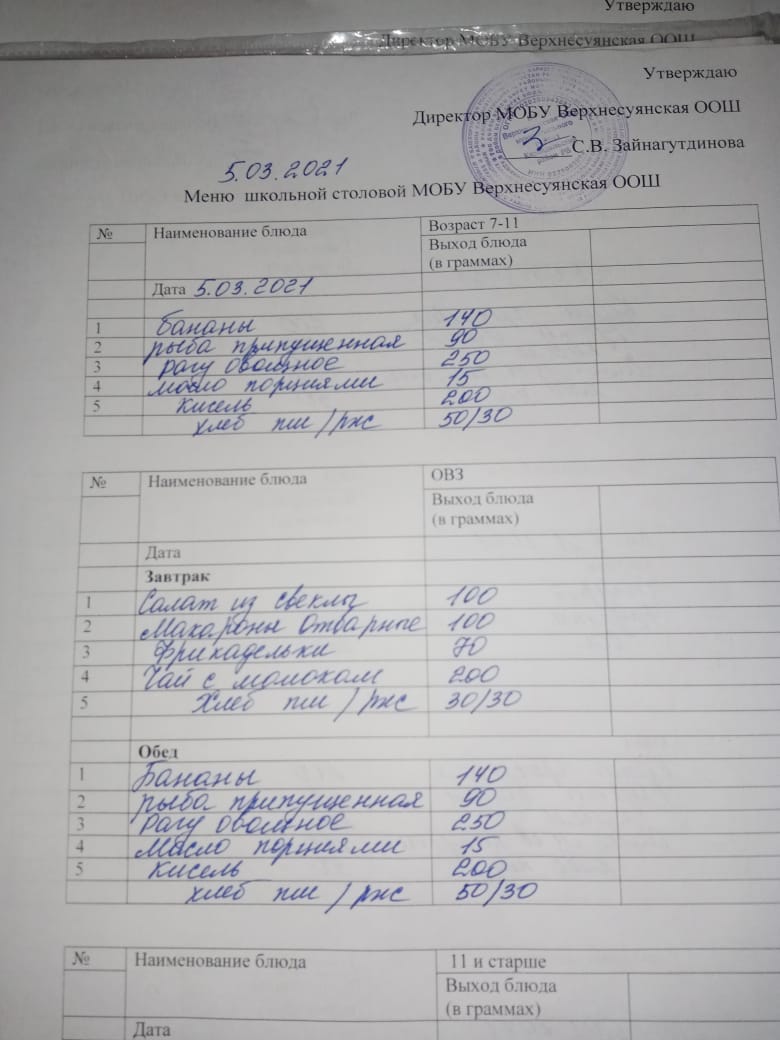 Утверждаю
Директор МОБУ Верхнесуянская ООШ
Утверждаю
Директор МОБУ Верхнесуянская ООШ
С.В. Зайнагутдинова
5.03.2021
Меню школьной столовой МОБУ Верхнесуянская ООШ
№ Наименование блюда Возраст 7-11
Выход блюда
(в граммах)
Дата 5.03.2021
1 Бананы 140
2 рыба припущенная 90
3 рагу овощное 250
4 масло порциями 15
5 кисель 200
хлеб пш/рж 50/30
№ Наименование блюда ОВЗ
Выход блюда
(в граммах)
Дата
Завтрак
1 Салат из свеклы 100
2 Макароны Отварные 100
3 Фрикадельки 70
4 Чай с молоком 200
5 Хлеб пш/рж 30/30
Обед
1 Бананы 140
2 рыба припущенная 90
3 Рагу овощное 250
4 Масло порциями 15
5 кисель 200
хлеб пш/рж 50/30
№ Наименование блюда 11 и старше
Выход блюда
(в граммах)
Дата